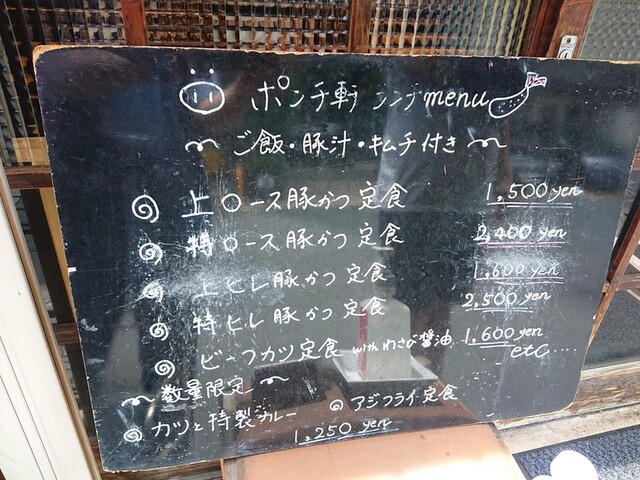 ポンチ軒 ランチmenu
ご飯・豚汁・キムチ付き
上ロース豚かつ定食 1,500 yen
特ロース豚かつ定食 2,400 yen
上ヒレ豚かつ定食 1,600 yen
特ヒレ豚かつ定食 2,500 yen
ビーフカツ定食 withわさび醤油 1,600 yen
etc....
数量限定
カツと特製カレー 1,250 yen
アジフライ定食